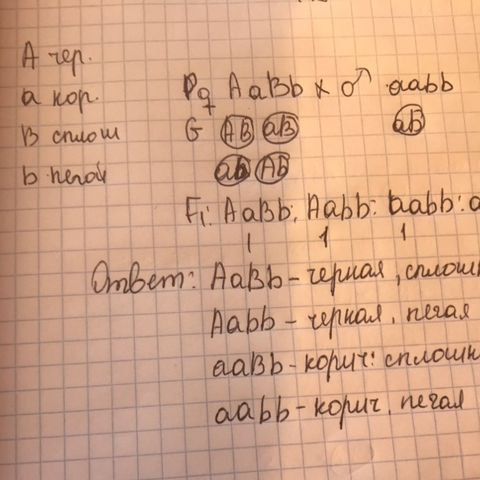 A чер.
a кор.
B сплош
b пегой
P ♀ AaBb × ♂ aabb
G AB aB aB
ab Ab
F₁: AaBb; Aabb: aabb: a
1 1 1
Ответ: AaBb - черная, сплошн
Aabb - черная, пегая
aaBb - корич: сплошн
aabb - корич, пегая